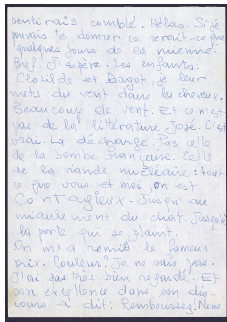 sentirais comblé. Hélas. Si je
pouvais te donner ce serait-ce que
quelques jours de la mienne!
Bref. J'espère. Les enfants:
Clotilde et Dagot, je leur
mets du vent dans les cheveux.
Beaucoup de vent. Et ce n'est
pas de la littérature José. C'est
vrai. La décharge. Pas celle
de la bombe française. Celle
de la viande nucléaire: tout
ce que vous et moi, on est
Contagieux. Jusqu'au
miaulement du chat. Jusqu'à
la porte qui se plaint.
On m'a remis le fameux
prix. Couleur? Je ne sais pas.
J'ai pas très bien regardé. Et
son excellence dans son dis-
cours a dit: Remboursez. Nous